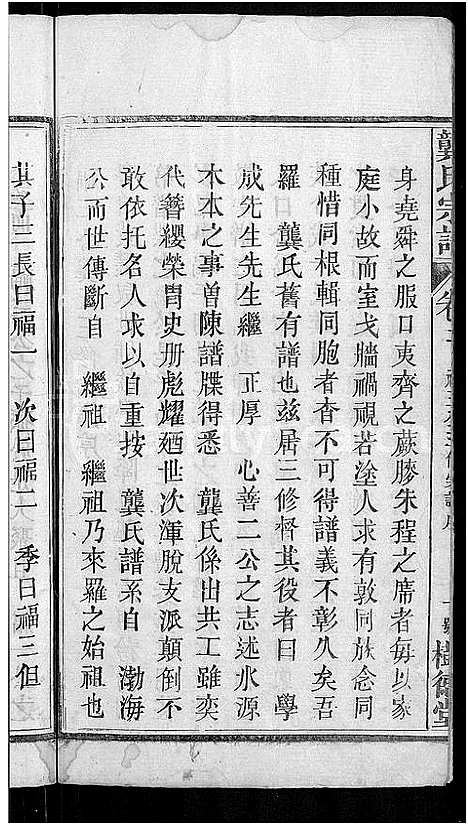 龔氏宗譜
卷一
樹德堂
身堯舜之服口夷齊之蕨勝朱程之席者每以家
庭小故而室戈牆禍視若塗人求有敦同族念同
種惜同根輯同胞者杳不可得譜義不彰久矣吾
羅　龔氏舊有譜也玆居三修督其役者曰　學
成先生先生繼　正厚　心善二公之志述水源
木本之事曾陳譜牒得悉　龔氏係出共工雖奕
代簪纓榮冑史册彪耀廼世次渾脫支派顛倒不
敢依托名人求以自重按　龔氏譜系自　渤海
公而世傳斷自　繼祖　繼祖乃來羅之始祖也
其子三長曰福一　次曰福二　季曰福三但